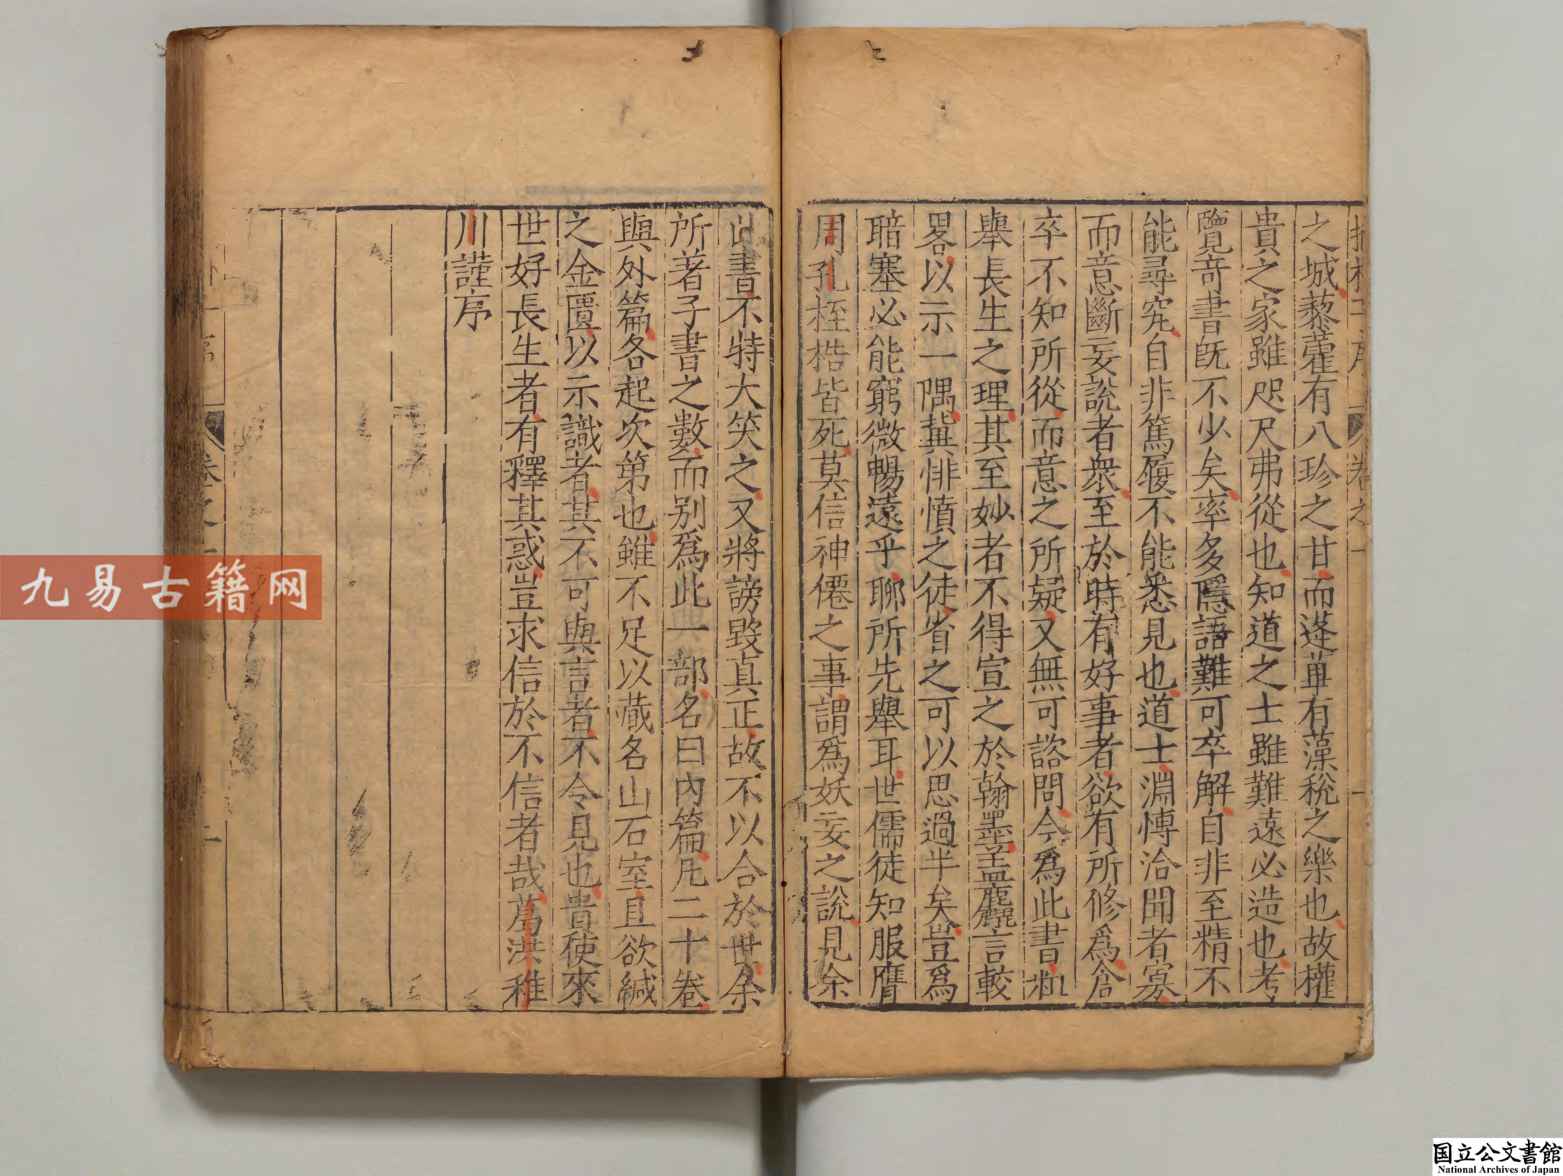 之城藜藿有八珍之甘而蓬蓽有藻梲之樂也故權
貴之家雖咫尺弗從也知道之士雖難遠必造也考
覽奇書旣不少矣率多隱語難可卒解自非至精不
能尋究自非篤履不能悉見也道士淵愽洽聞者寡
而意斷妄說者衆至於時有好事者欲有所修爲倉
卒不知所從而意之所疑又無可諮問今爲此書粗
舉長生之理其至妙者不得宣之於翰墨盖麤言較
畧以示一隅冀悱憤之徒省之可以思過半矣豈爲
暗塞必能窮微暢遠乎聊所先舉耳世儒徒知服膺
周孔桎梏皆死莫信神僊之事謂爲妖妄之說見余
此書不特大笑之又將謗毀眞正故不以合於世余
所著子書之數而别爲此一部名曰內篇凡二十卷
與外篇各起次第也雖不足以藏名山石室且欲緘
之金匱以示識者其不可與言者不令見也貴使來
世好長生者有釋其惑豈求信於不信者哉葛洪稚
川謹序
卷之一
九易古籍网
国立公文書館
National Archives of Japan